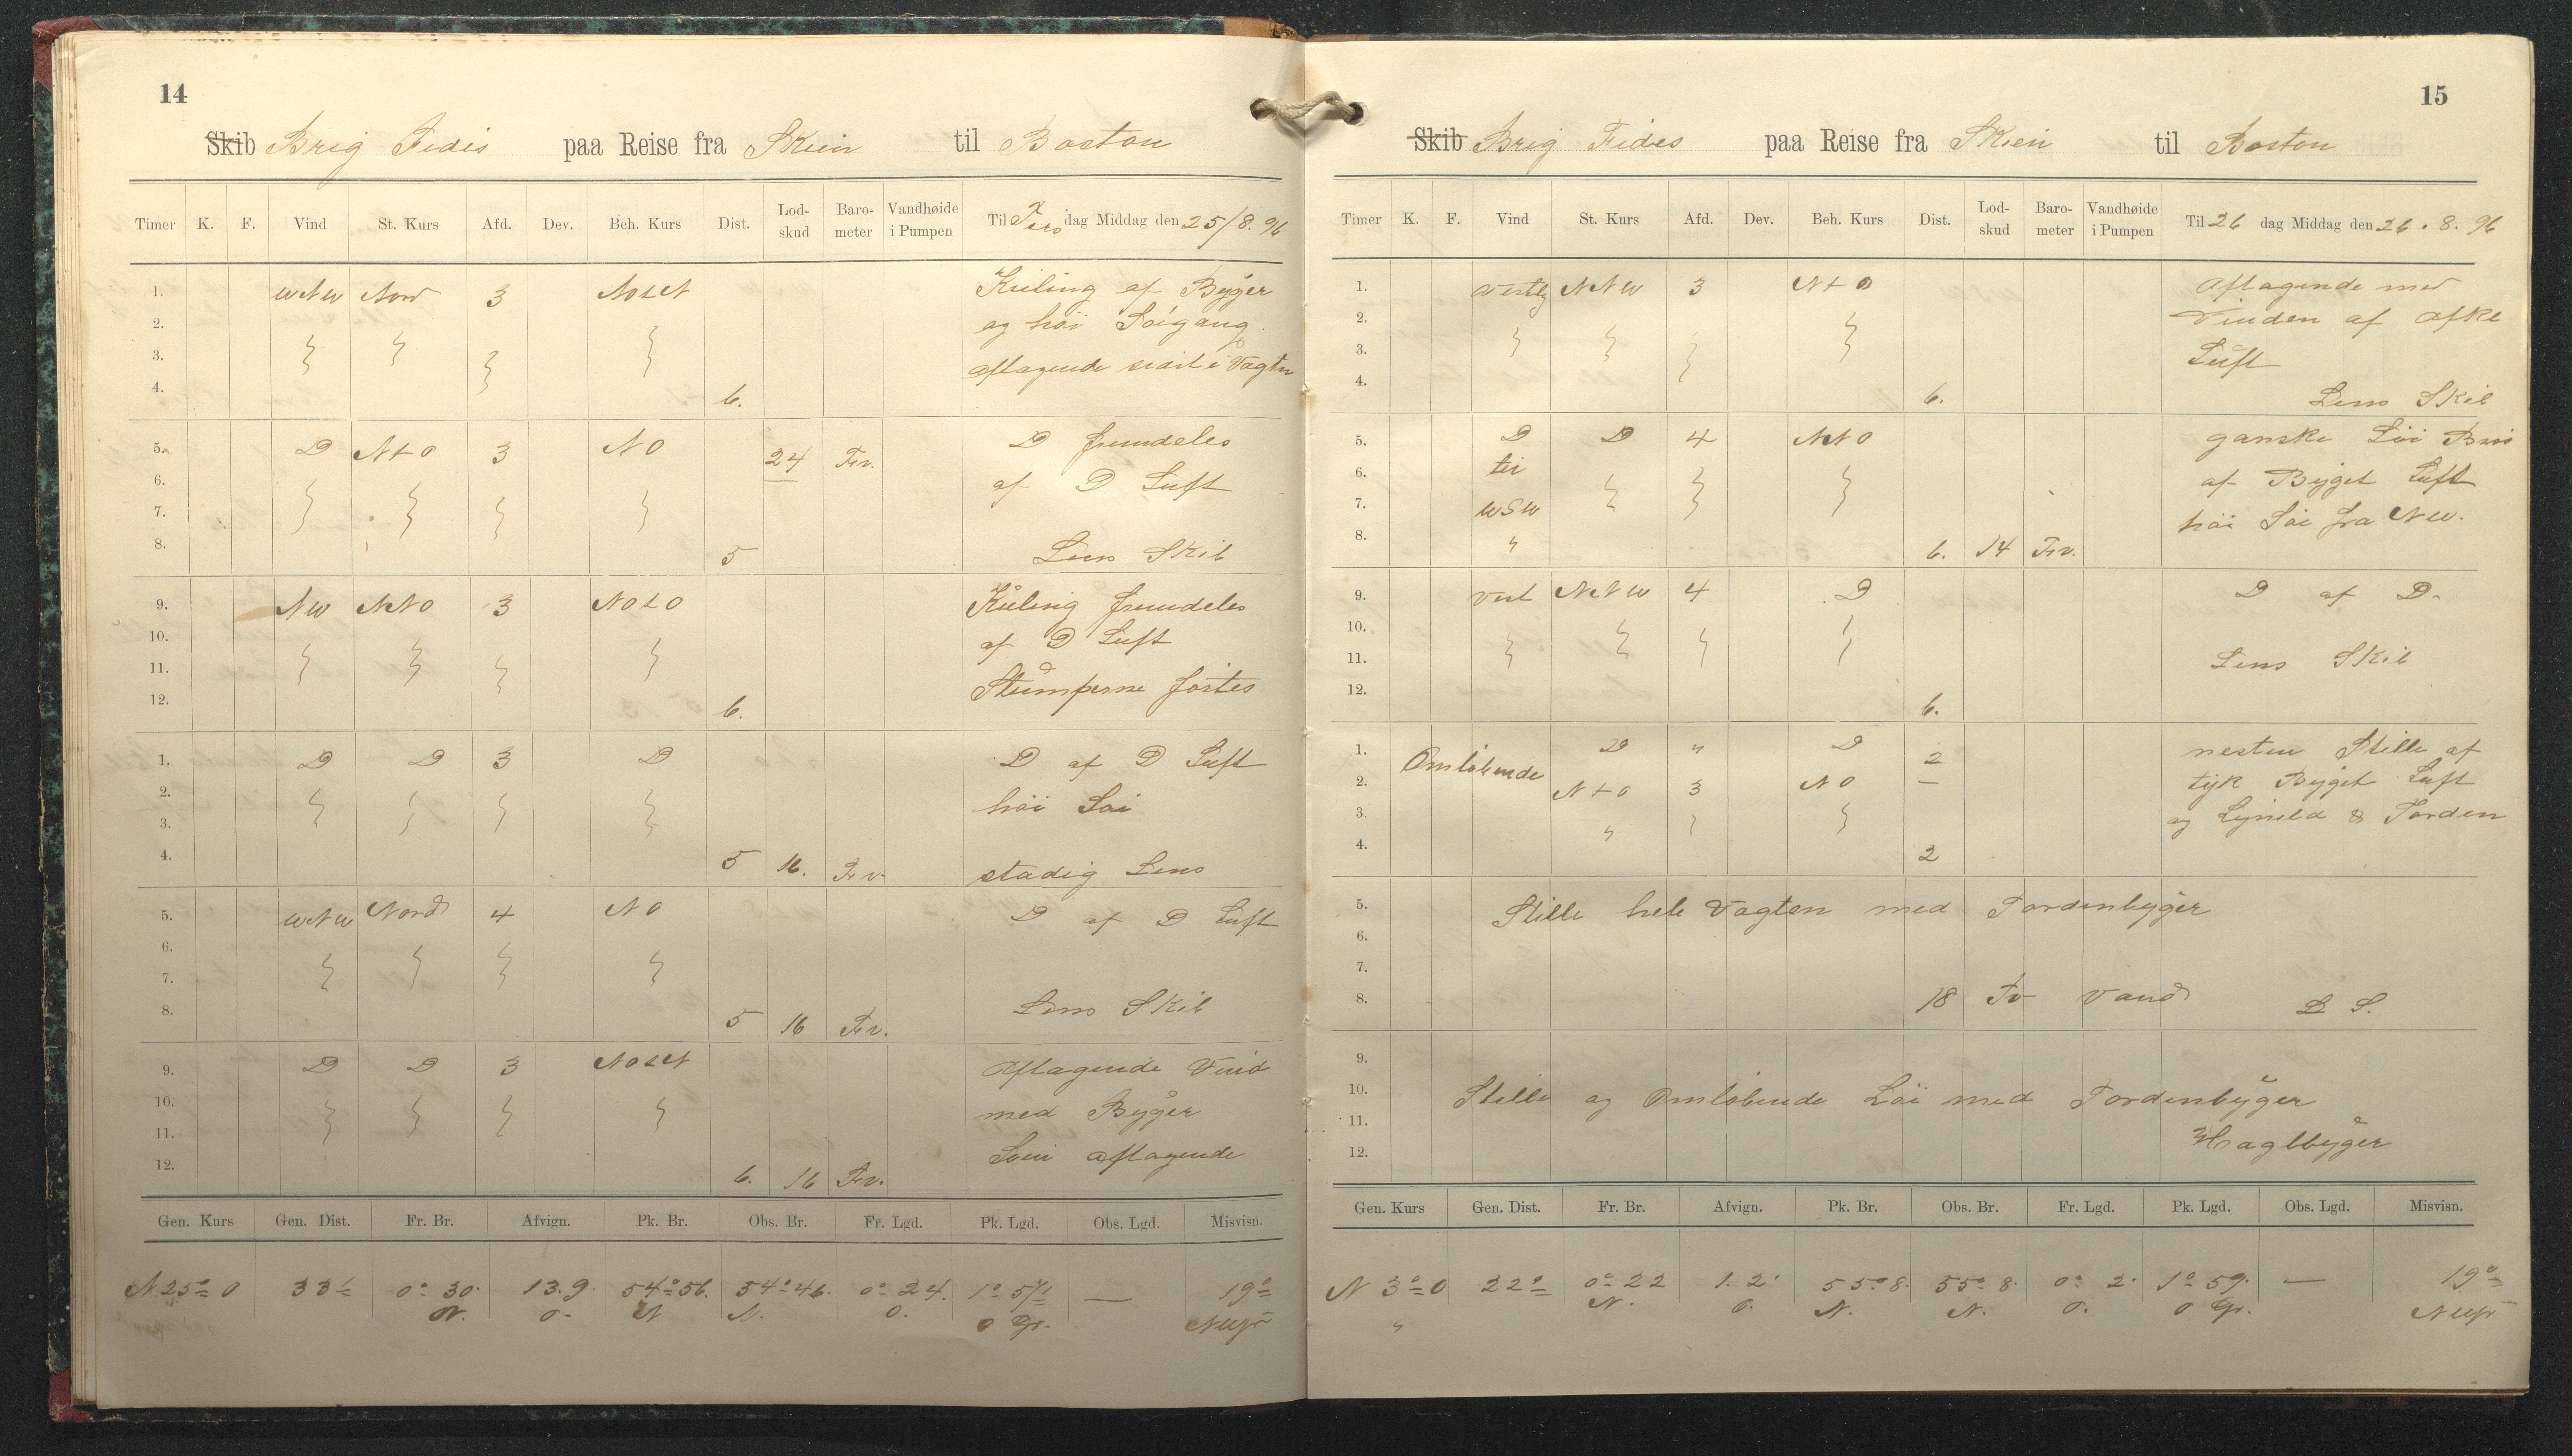 14
Skib Brig Fides paa Reise fra Skien til Boston
Timer K. F. Vind St. Kurs Afd. Dev. Beh. Kurs Dist. Lod-skud Baro-meter Vandhøide i Pumpen Til Tirsdag Middag den 25/8. 96
1. WNW Nord 3 NOtN Kuling af Byger
2. og høi Søigang.
3. aftagende sidst i Vagten
4. 6.
5. D NtO 3 NO 24 Frv. D fremdeles
6. af D Luft
7.
8. 5 Lens Skib
9. NW NNO 3 NOtO Kuling fremdeles
10. af D Luft
11. Stumperne
12. 6.
1. D D 3 D D af D Luft
2. høi Søi
3.
4. 5 16. Frv. stadig Lens
5. WNW Nord 4 NO D af D Luft
6.
7.
8. 5 16 Frv. Lens Skib
9. D D 3 NOtN Aftagende Vind
10. med Byger
11. Søen aftagende
12. 6. 16 Frv.
Gen. Kurs Gen. Dist. Fr. Br. Afvign. Pk. Br. Obs. Br. Fr. Lgd. Pk. Lgd. Obs. Lgd. Misvisn.
N 25° O 33' 0° 30. 13.9. 54° 56. 54° 46. 0° 24. 1° 57' — 19°
N. O. N N. O. O Gr.
15
Skib Brig Fides paa Reise fra Skien til Boston
Timer K. F. Vind St. Kurs Afd. Dev. Beh. Kurs Dist. Lod-skud Baro-meter Vandhøide i Pumpen Til 26 dag Middag den 26. 8. 96
1. Vestlig NNW 3 NtO Aftagende med
2. Vinden af
3. Luft
4. 6. Lens Skib
5. D D 4 NNO ganske Løi Bris
6. til af Byget Luft
7. WSW høi Søi fra NW.
8. " 6. 14 Frv.
9. Vest NNW 4 D D af D.
10.
11. Lens Skib
12. 6.
1. Omløbende D " D 2 nesten Stille af
2. NtO 3 NO — tyk Byget Luft
3. " og Lyneld & Torden
4. 2
5. Stille hele Vagten med Tordenbyger
6.
7.
8. 18 Tv Vand L S.
9.
10. Stille og Omløbende Løi med Tordenbyger
11. Haglbyger
12.
Gen. Kurs Gen. Dist. Fr. Br. Afvign. Pk. Br. Obs. Br. Fr. Lgd. Pk. Lgd. Obs. Lgd. Misvisn.
N 3° O 22 0° 22 1. 2. 55° 8. 55° 8. 0° 2. 1° 59. — 19°
" N. O. N. N. O. O Gr.